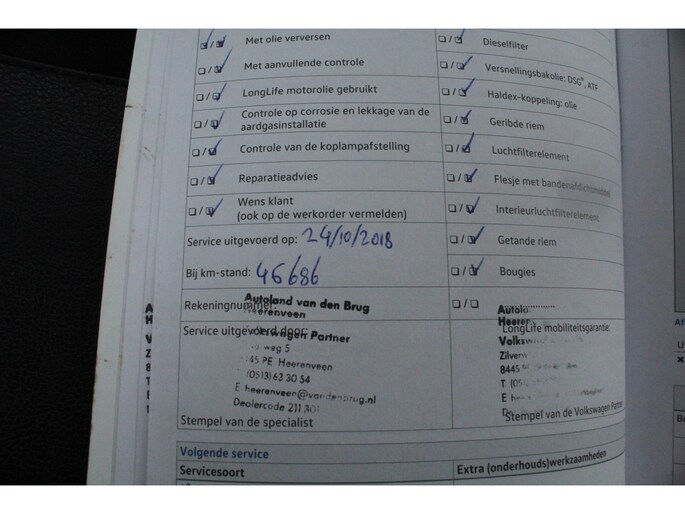 Met olie verversen
Met aanvullende controle
LongLife motorolie gebruikt
Controle op corrosie en lekkage van de
aardgasinstallatie
Controle van de koplampafstelling
Reparatieadvies
Wens klant
(ook op de werkorder vermelden)
Service uitgevoerd op: 24/10/2018
Bij km-stand: 46686
Rekeningnummer:
Autoland van den Brug
Heerenveen
Service uitgevoerd door:
Volkswagen Partner
weg 5
8445 PE Heerenveen
(0513) 63 30 54
E heerenveen@vandenbrug.nl
Dealercode 211 301
Stempel van de specialist
Dieselfilter
Versnellingsbakolie: DSG®, ATF
Haldex-koppeling: olie
Geribde riem
Luchtfilterelement
Flesje met bandenafdichtmiddel
Interieurluchtfilterelement
Getande riem
Bougies
Heerenv
LongLife mobiliteitsgarantie:
Volksw
Zilverw
8445
T (05
E
Stempel van de Volkswagen Partner
Volgende service
Servicesoort
Extra (onderhouds)werkzaamheden